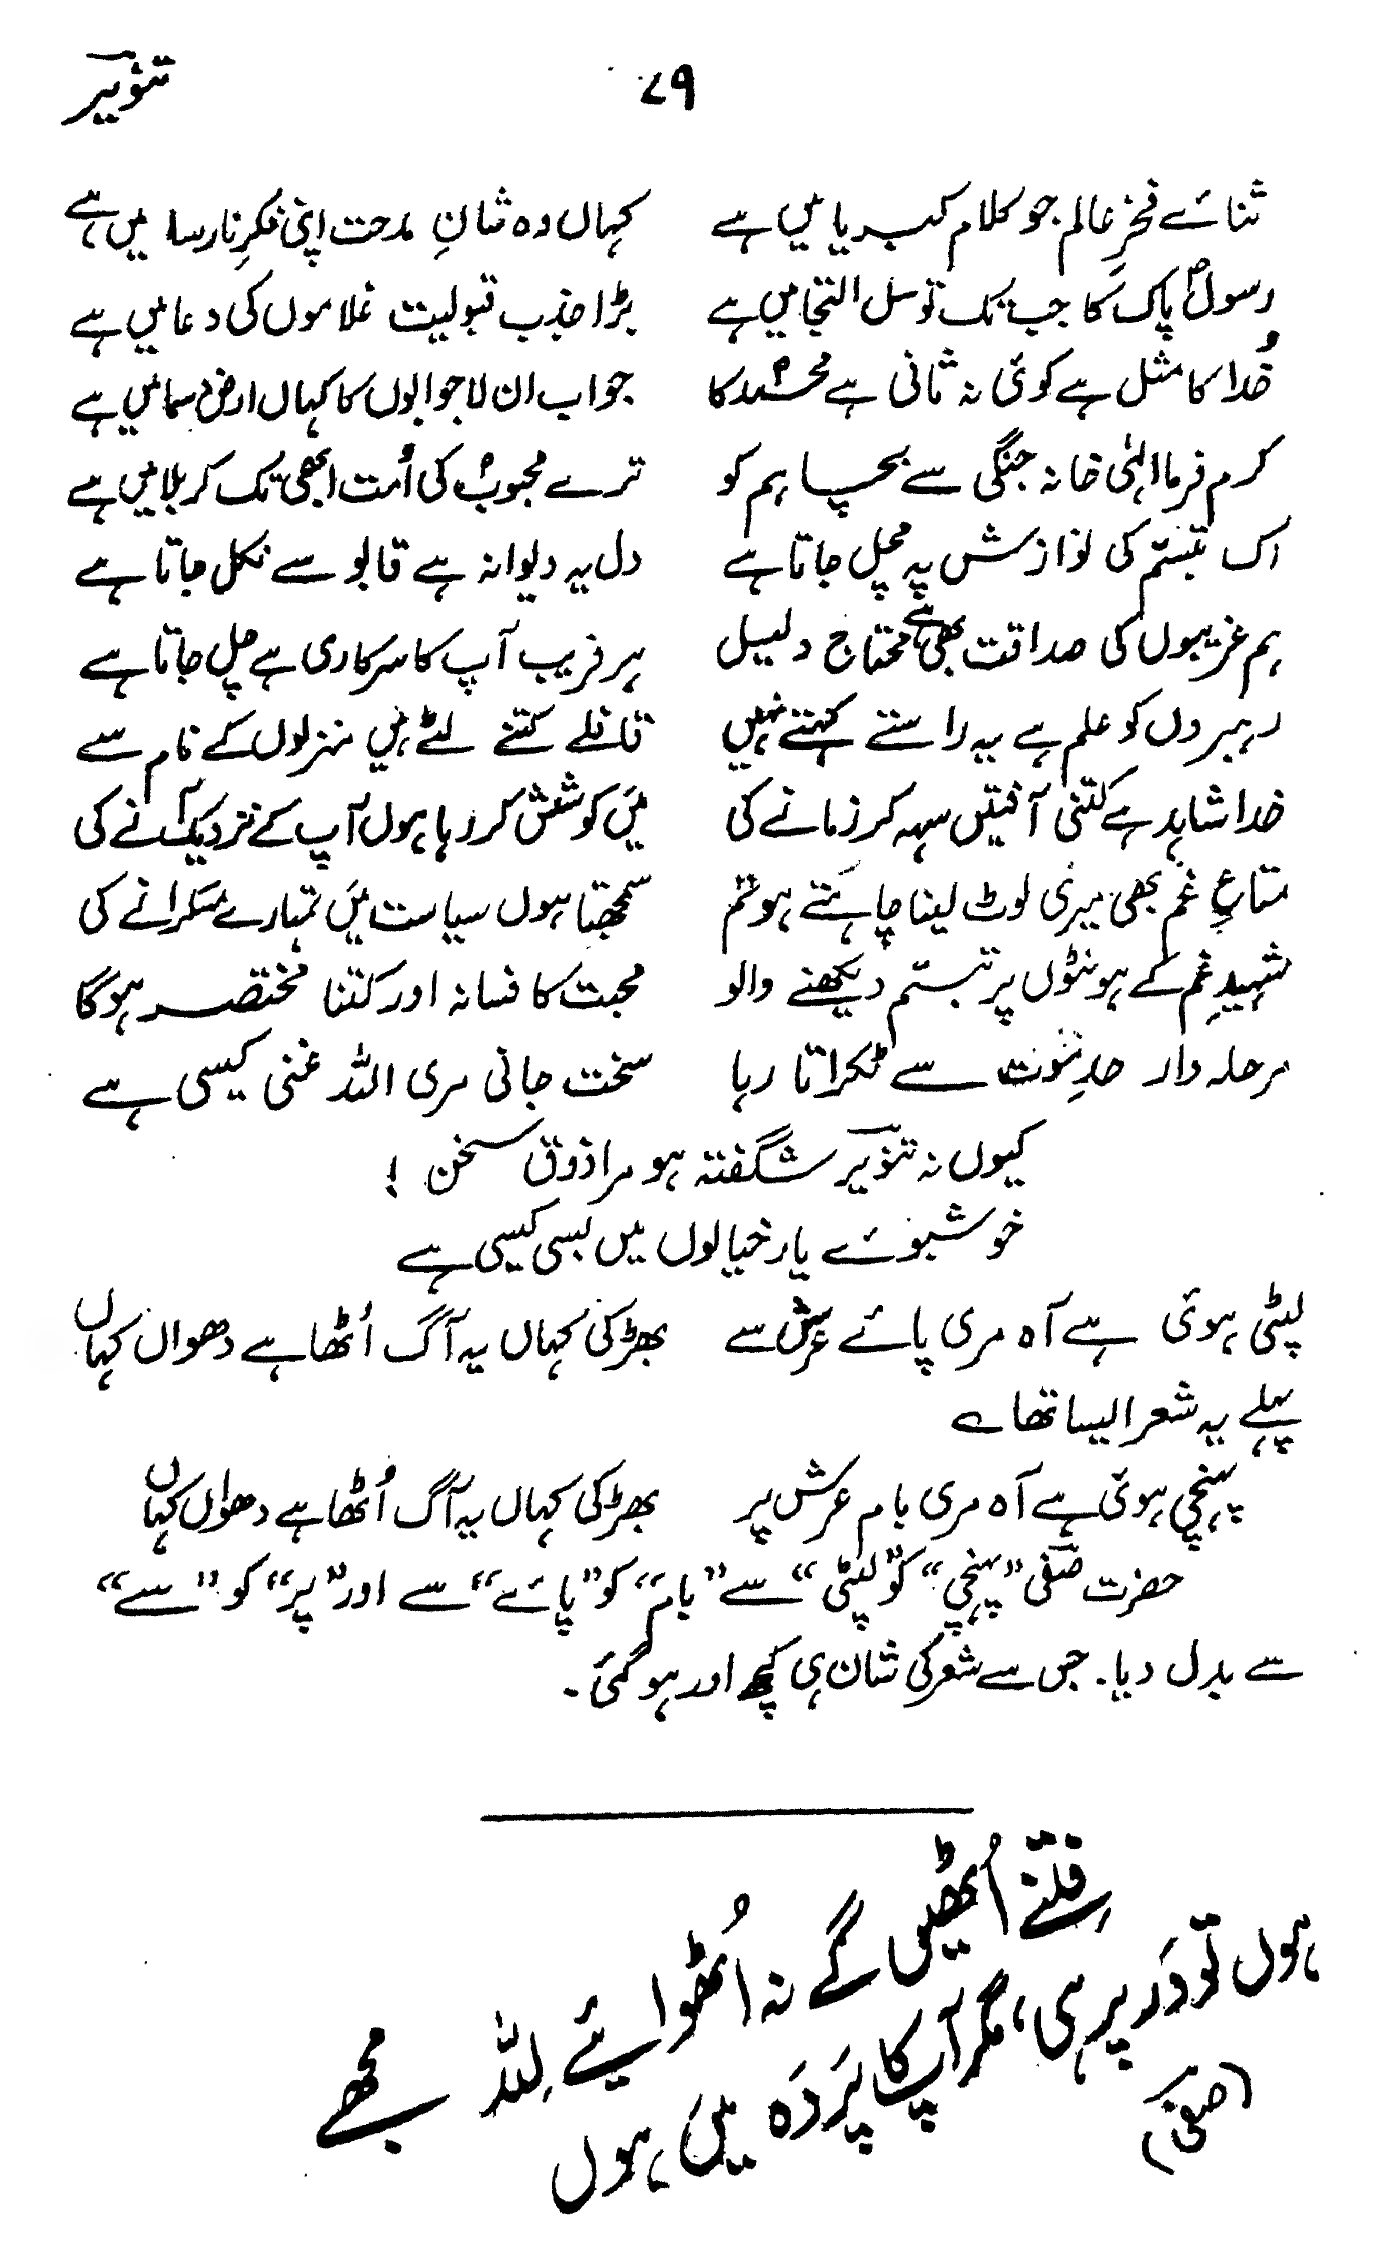 ۷۹ تنویرؔ
ثنائے فخرِ عالم جو کلام کبریا میں ہے کہاں وہ شانِ مدحت اپنی فکرِ نارسا میں ہے
رسولؐ پاک کا جب تک توسل التجا میں ہے بڑا جذب قبولیت غلاموں کی دعا میں ہے
خُدا کا مثل ہے کوئی نہ ثانی ہے محمدؐ کا جواب ان لاجوابوں کا کہاں ارض و سما میں ہے
کرم فرما الٰہی خانہ جنگی سے بچا ہم کو ترے محبوبؐ کی اُمت ابھی تک کربلا میں ہے
اک تبسّم کی نوازش پہ مچل جاتا ہے دل یہ دیوانہ ہے قابو سے نکل جاتا ہے
ہم غریبوں کی صداقت بھی ہے محتاج دلیل ہر فریب آپ کا سرکاری ہے چل جاتا ہے
رہبروں کو علم ہے یہ راستے کہتے نہیں قافلے کتنے لٹے ہیں منزلوں کے نام سے
خدا شاہد ہے کتنی آفتیں سہہ کر زمانے کی میں کوشش کر رہا ہوں آپ کے نزدیک آنے کی
متاعِ غم بھی میری لوٹ لینا چاہتے ہو تم سمجھتا ہوں سیاست میں تمہارے مسکرانے کی
شہیدِ غم کے ہونٹوں پر تبسّم دیکھنے والو محبت کا فسانہ اور کتنا مختصر ہوگا
مرحلہ دار حدِ موت سے ٹکراتا رہا سخت جانی مری اللہ غنی کیسی ہے
کیوں نہ تنویرؔ شگفتہ ہو مرا ذوق سخن !
خوشبوئے یار خیالوں میں بسی کیسی ہے
لپٹی ہوئی ہے آہ مری پائے عرش سے بھڑکی کہاں یہ آگ اُٹھا ہے دھواں کہاں
پہلے یہ شعر ایسا تھا ے
پہنچی ہوئی ہے آہ مری بام عرش پر بھڑکی کہاں یہ آگ اُٹھا ہے دھواں کہاں
حضرت صفیؔ ”پہنچی“ کو ”لپٹی“ سے ”بام“ کو ”پائے“ سے اور ”پر“ کو ”سے“
سے بدل دیا۔ جس سے شعر کی شان ہی کچھ اور ہوگئی۔
فِتنے اُٹھیں گے نہ اُٹھوائیے لِلّٰلہ مجھے
ہوں تو دَر پر ہی، مگر آپ کا پَردَہ میں ہوں
(صفیؔ)